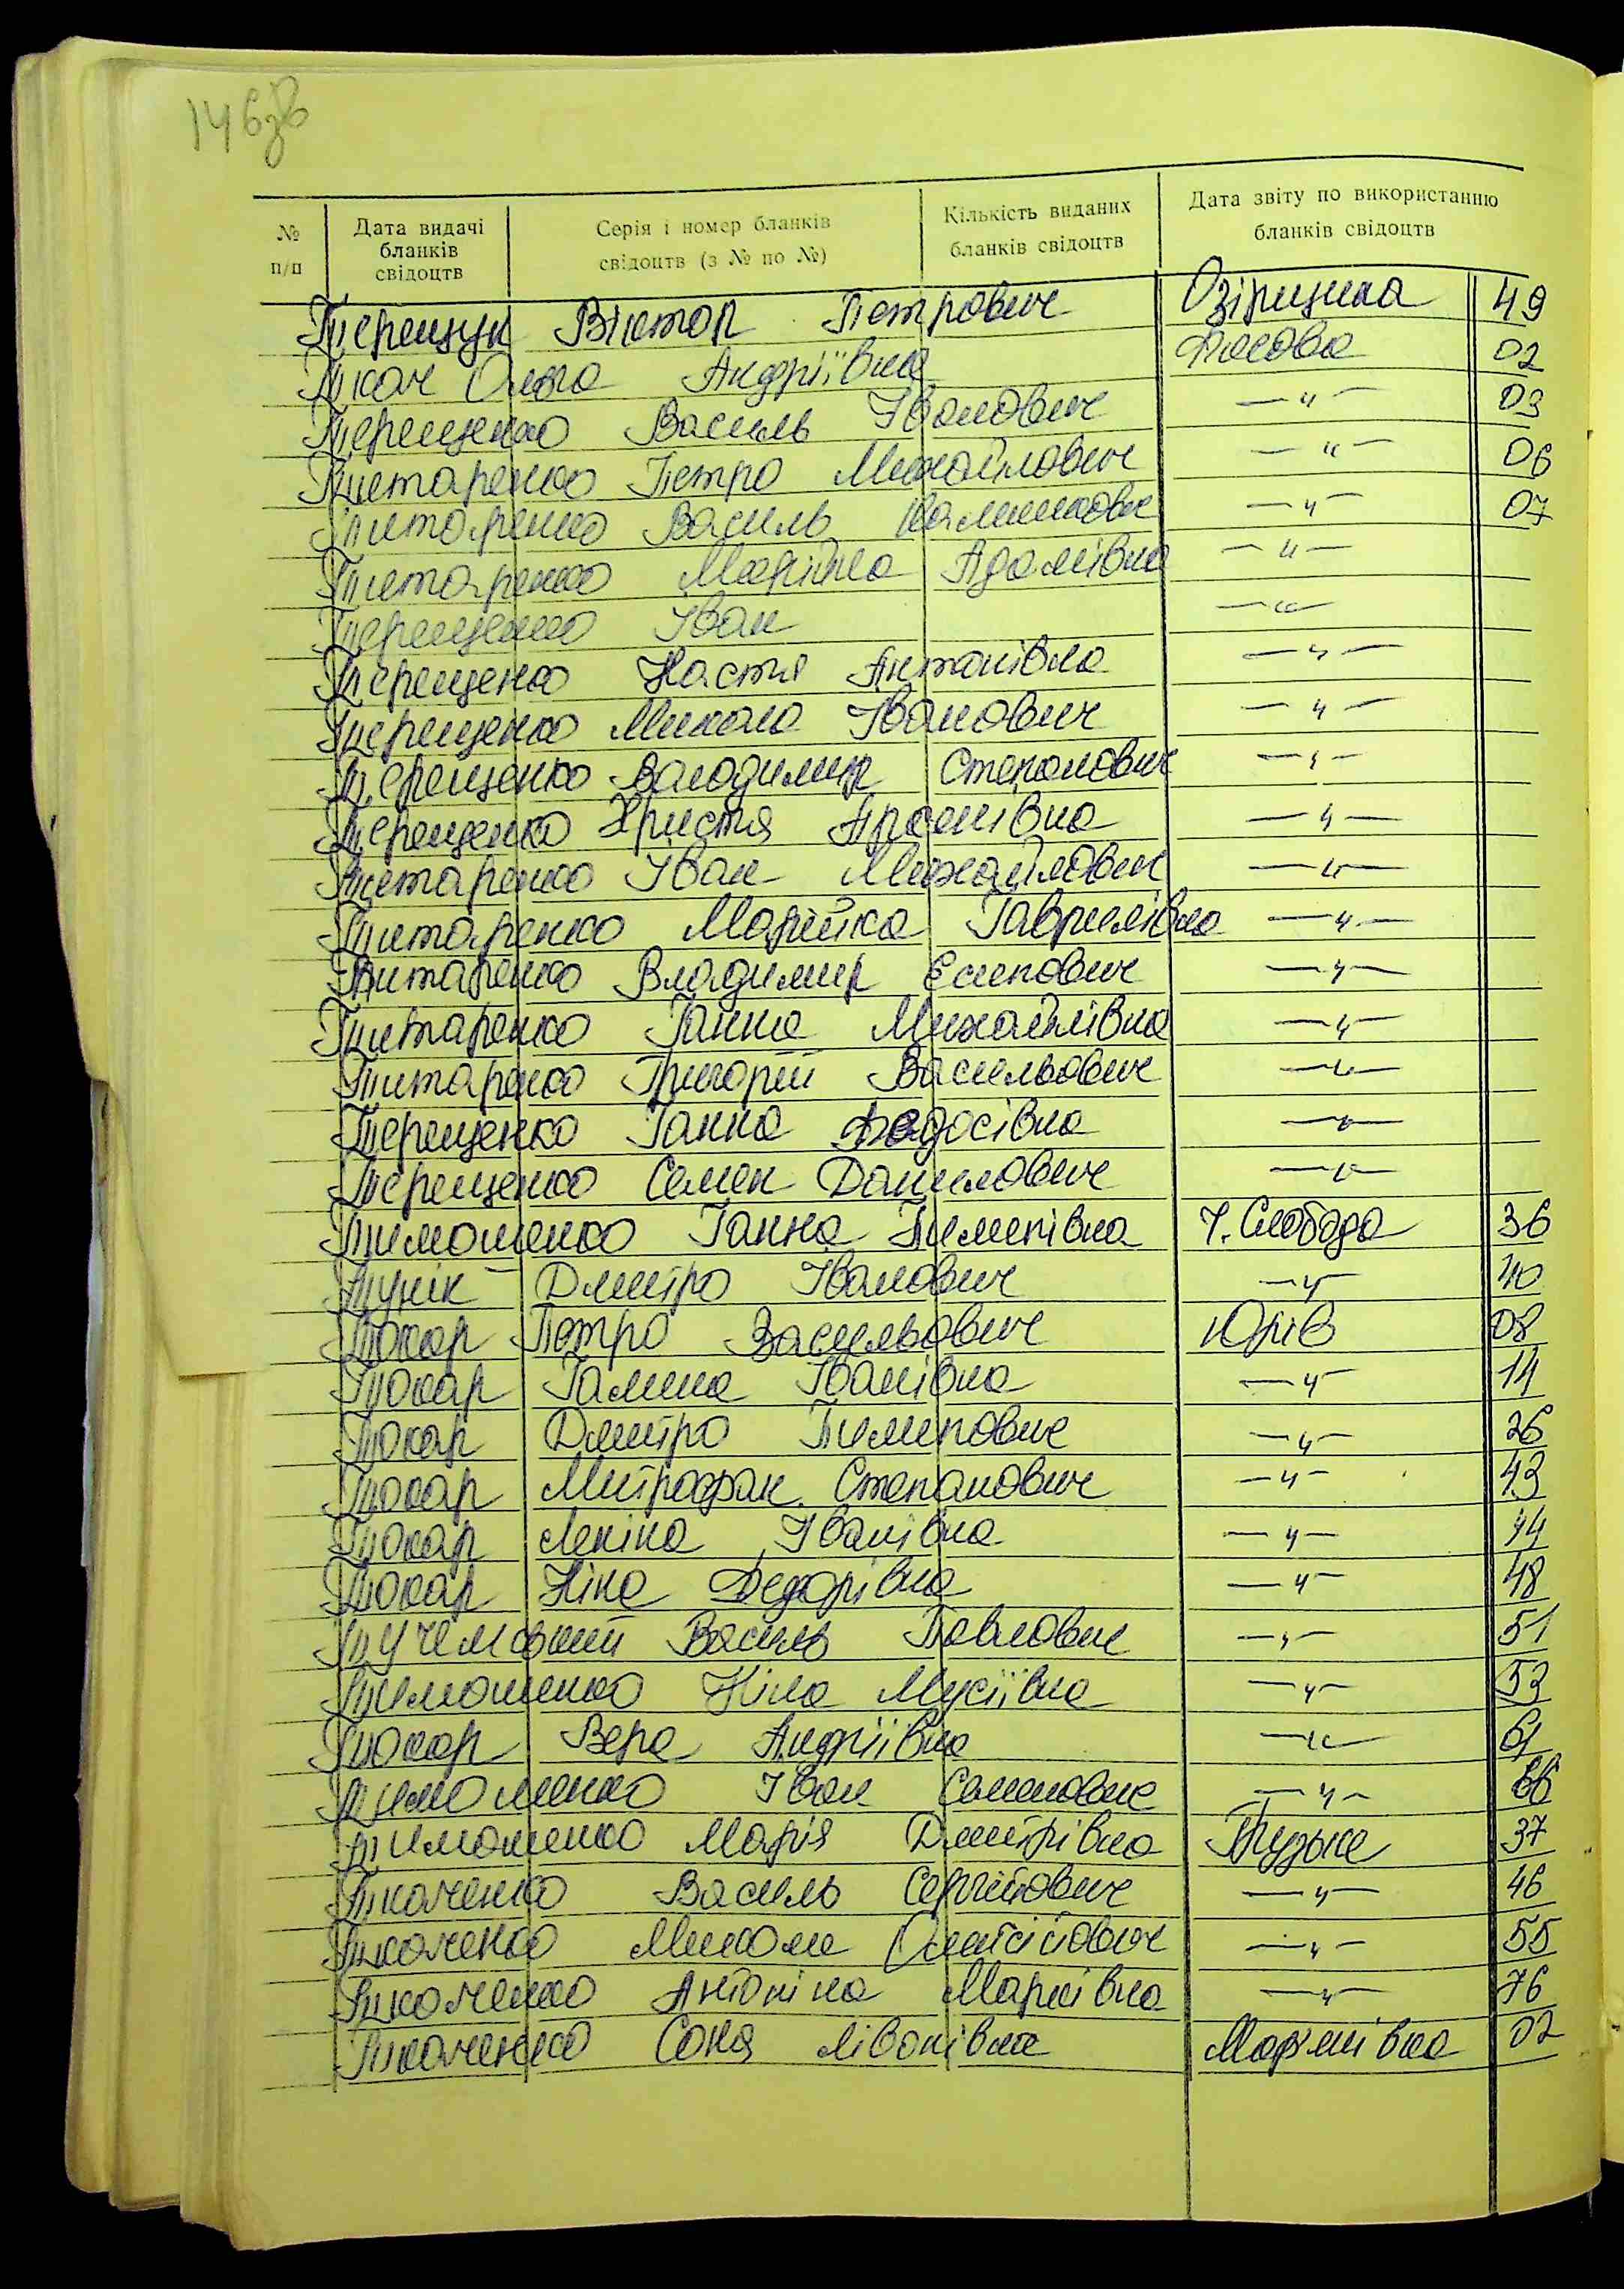 146зв
№ п/п
Дата видачі бланків свідоцтв
Серія і номер бланків свідоцтв (з № по №)
Кількість виданих бланків свідоцтв
Дата звіту по використанню бланків свідоцтв
Терещук Віктор Петрович Озірщина 49
Ткач Ольга Андріївна Фасова 02
Терещенко Василь Іванович —"— 03
Титаренко Петро Михайлович —"— 06
Титаренко Василь —"— 07
Титаренко Марійка Адамівна —"—
Терещенко Іван —"—
Терещенко Настя Антонівна —"—
Терещенко Микола Іванович —"—
Терещенко Володимир Степанович —"—
Терещенко Христя —"—
Титаренко Іван Михайлович —"—
Титаренко Марійка Гаврилівна —"—
Титаренко Владимир Єсипович —"—
Титаренко Ганна Михайлівна —"—
Титаренко Григорій Васильович —"—
Терещенко Ганна Федосівна —"—
Терещенко Семен Данилович —"—
Тимошенко Ганна Пилипівна Ч. Слобода 36
Тунік Дмитро Іванович —"— 40
Токар Петро Васильович Юрів 08
Токар Галина Іванівна —"— 14
Токар Дмитро Пилипович —"— 26
Токар Митрофан Степанович —"— 43
Токар Леніна Іванівна —"— 44
Токар Ніна Федорівна —"— 48
Василь Павлович —"— 51
Тимошенко Ніла Мусіївна —"— 53
Токар Вера Андріївна —"— 61
Тимошенко Іван Семенович —"— 66
Тимошенко Марія Дмитрівна 37
Ткаченко Василь Сергійович —"— 46
Ткаченко Микола —"— 55
Ткаченко Антоніна Марківна —"— 76
Ткаченко Соня 02